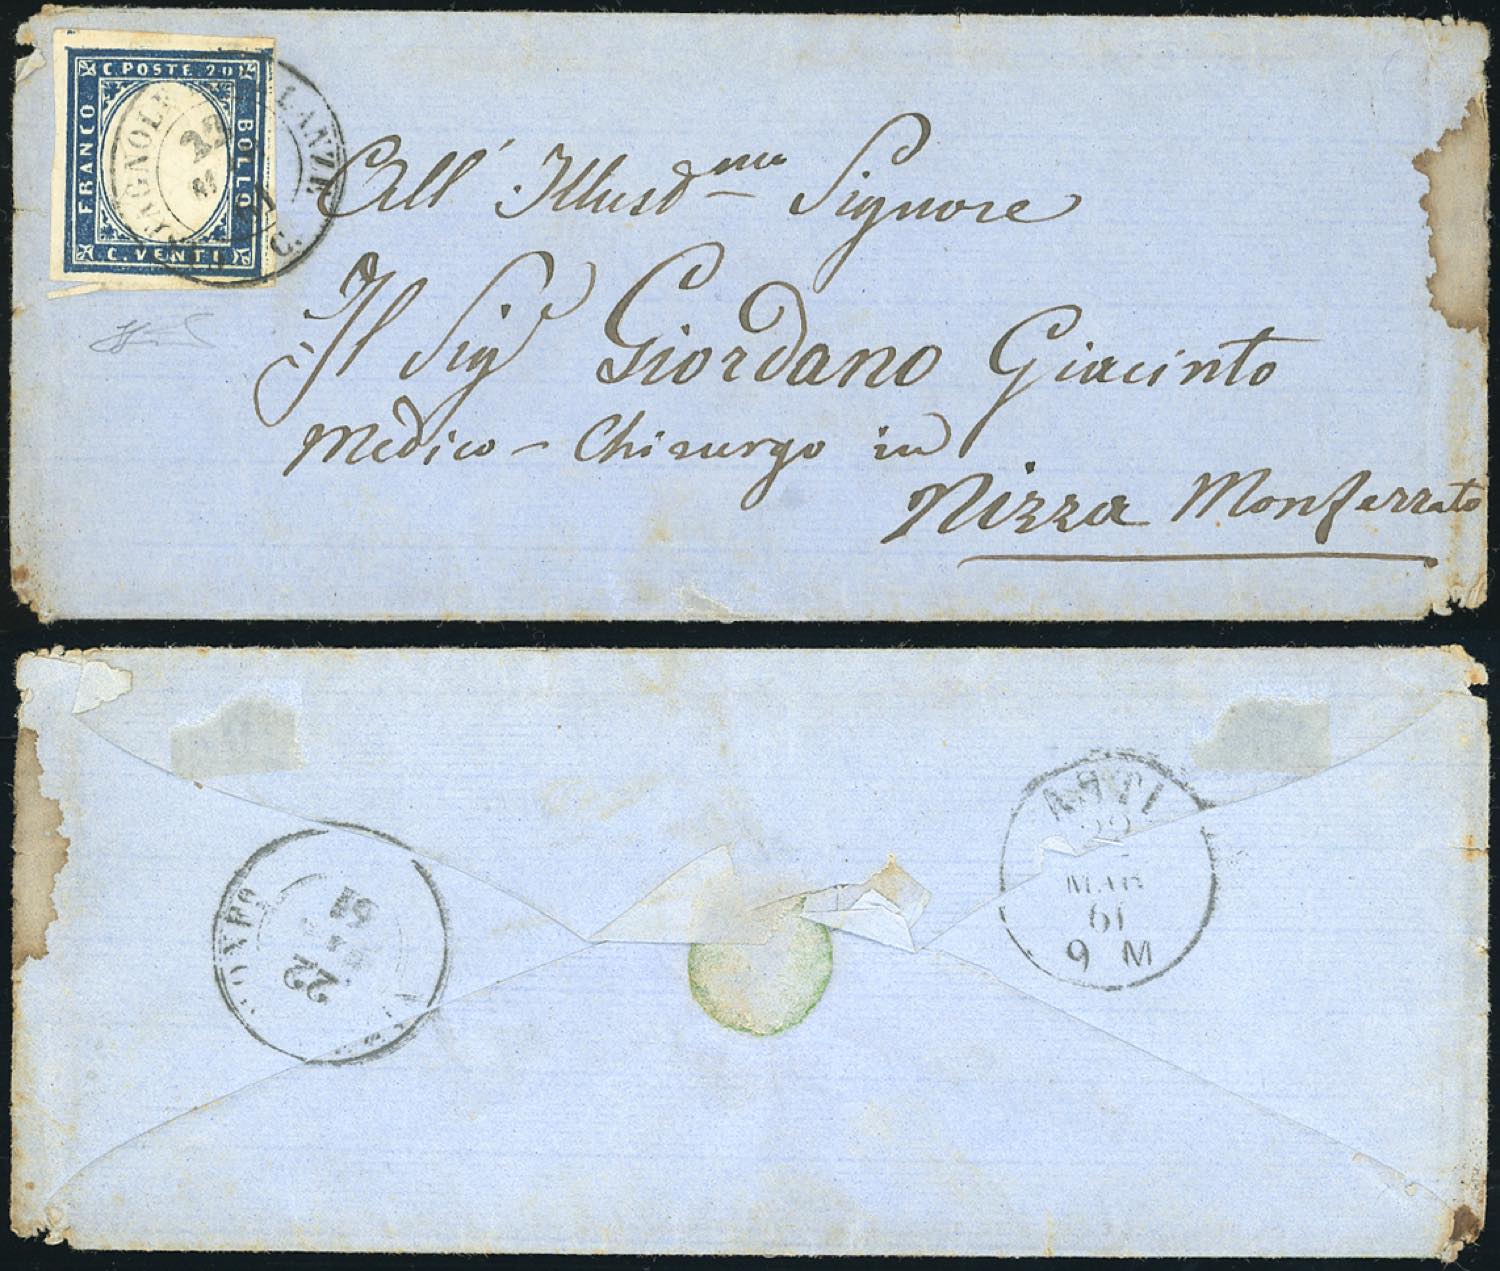 C. POSTE 20
FRANCO
BOLLO
C. VENTI
LANZE
22
C.
All' Illust.mo Signore
Il Sigr Giordano Giacinto
Medico - Chirurgo in
Nizza Monferrato
ASTI
22
MAR
61
9 M
MONFO
22
61